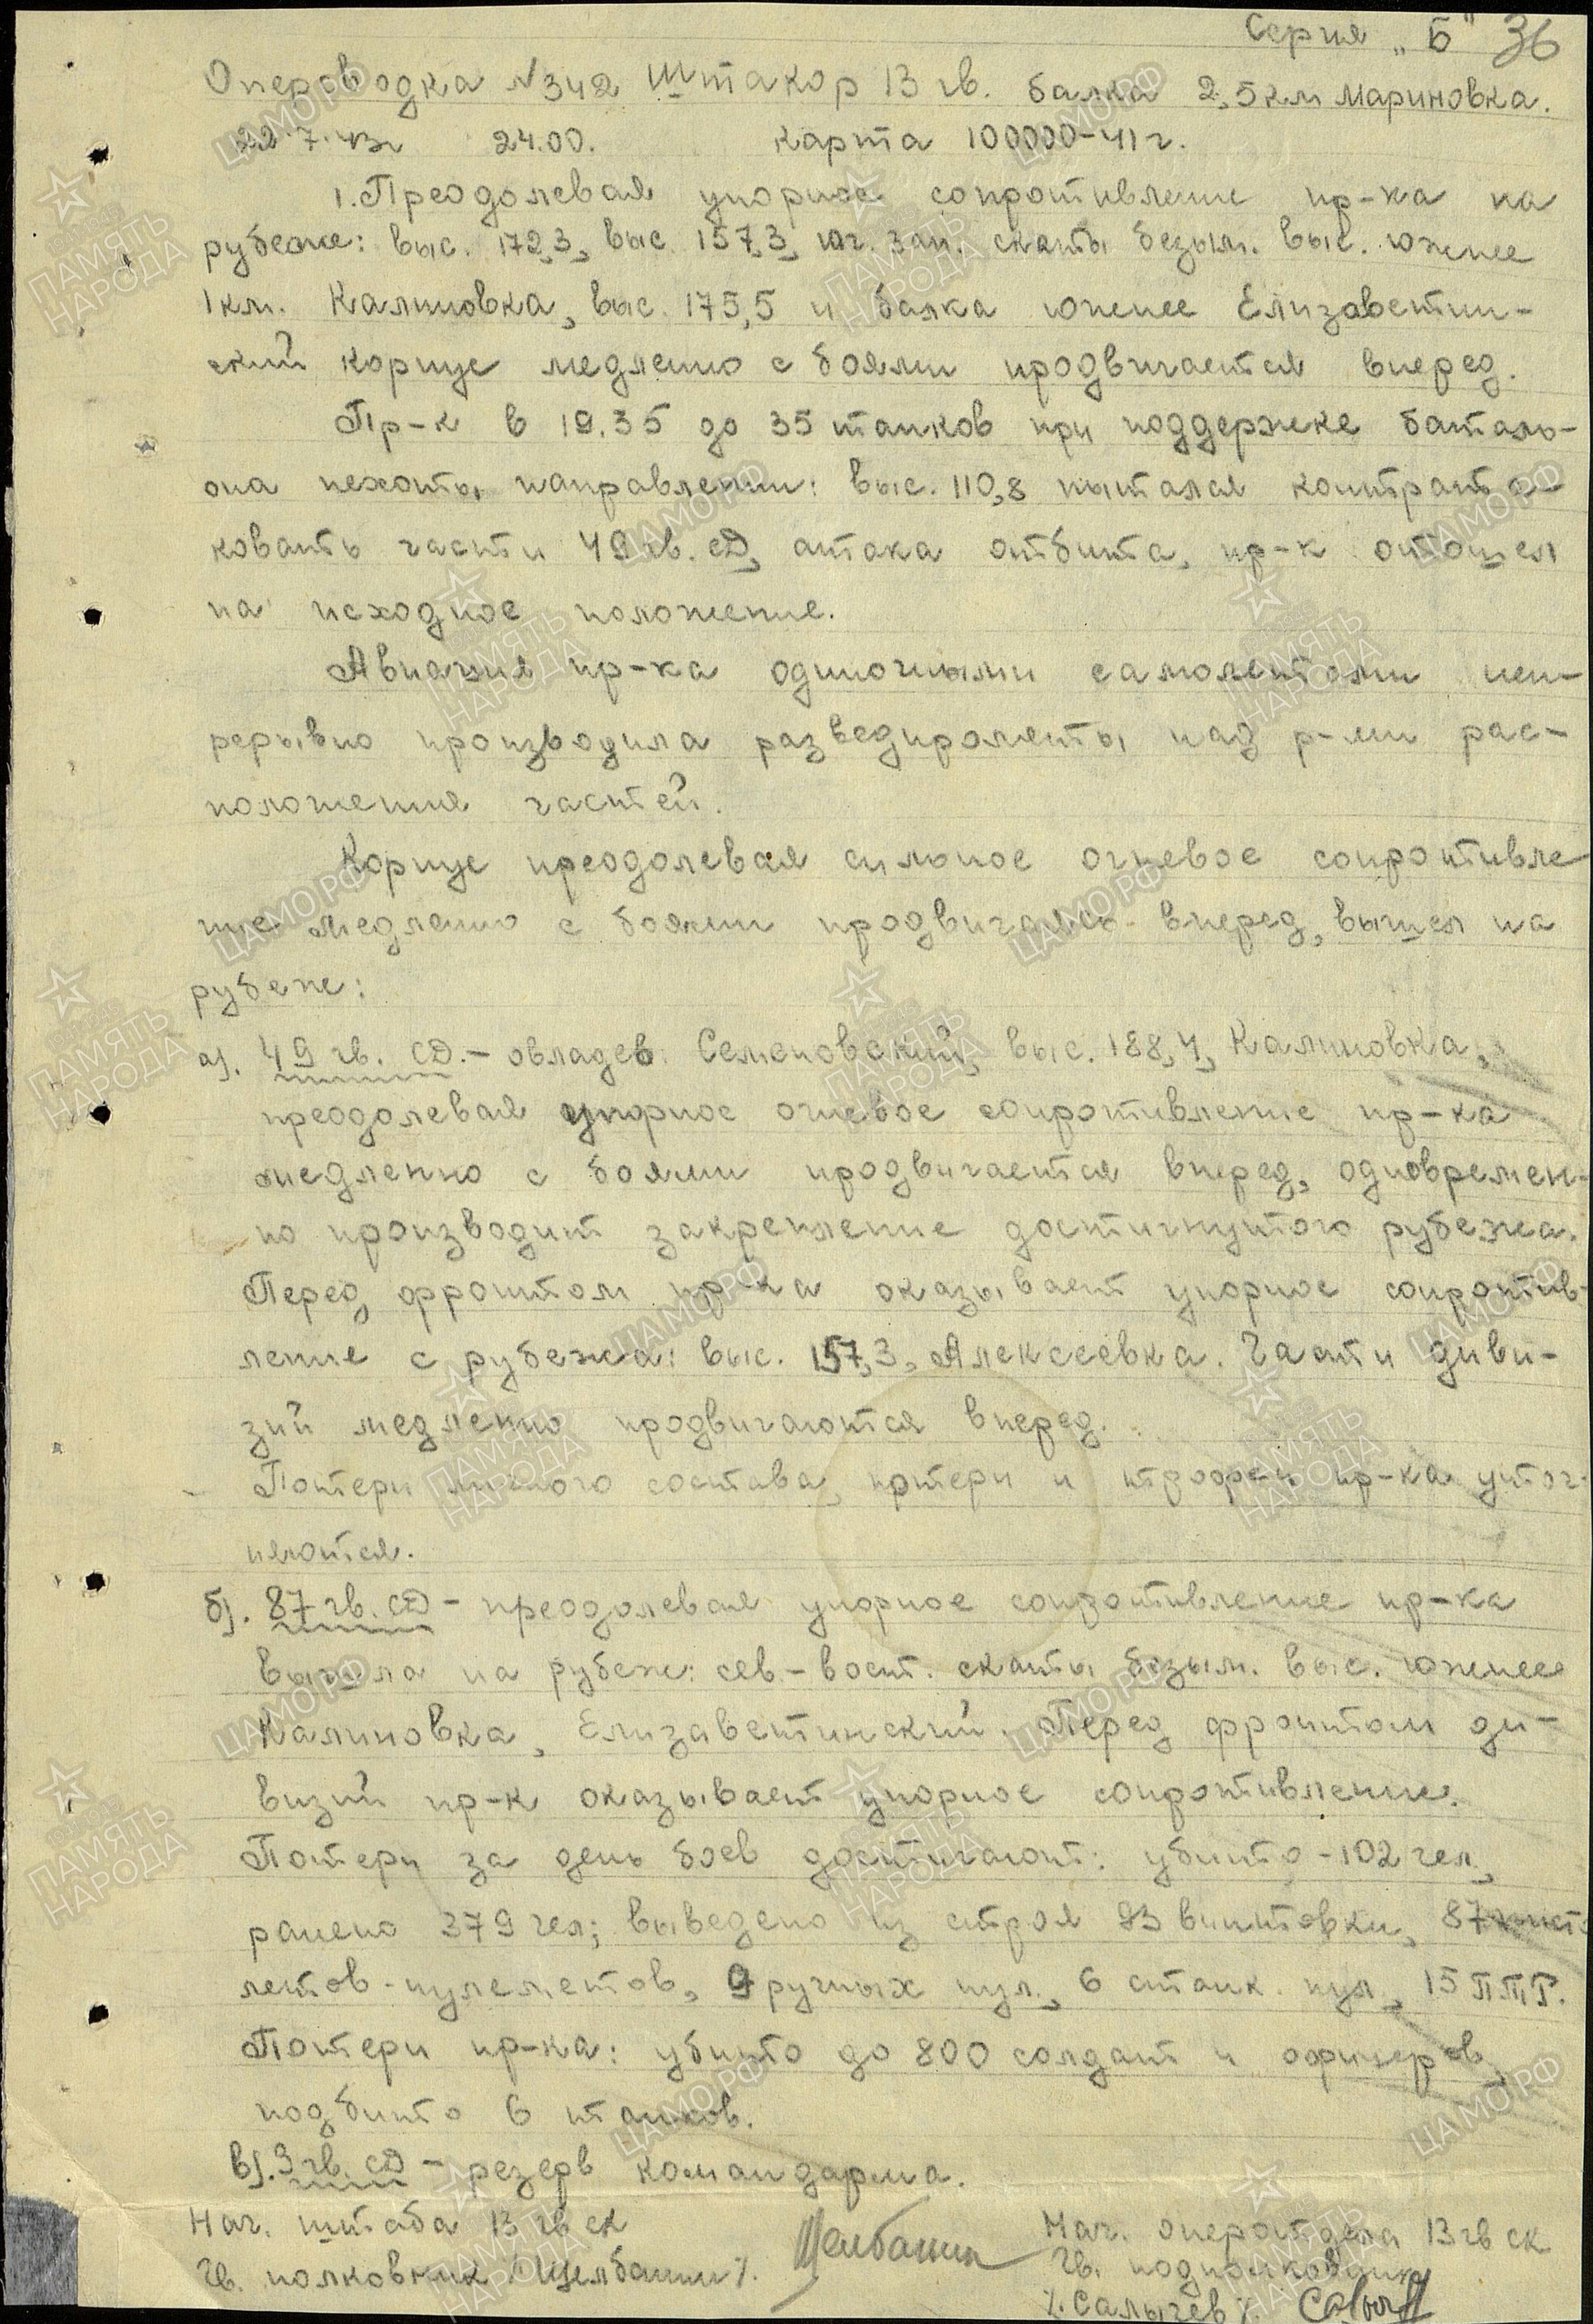 Серия „Б" 36
Оперсводка №342 Штакор 13 гв. балка 2,5 км Мариновка.
22.7.43г 24.00. Карта 100000-41г.
1. Преодолевая упорное сопротивление пр-ка на
рубеже: выс. 172,3, выс. 157,3, юг. зап. скаты безым. выс. южнее
1 км. Калиновка, выс. 175,5 и балка южнее Елизаветин-
ский корпус медленно с боями продвигается вперед.
Пр-к в 19.35 до 35 танков при поддержке баталь-
она пехоты направлении: выс. 110,8 пытался контрата-
ковать части 49 гв. сд, атака отбита, пр-к отошел
на исходное положение.
Авиация пр-ка одиночными самолетами неп-
рерывно производила разведполеты над р-ми рас-
положения частей.
Корпус преодолевая сильное огневое сопротивле
ние медленно с боями продвигаясь вперед, вышел на
рубеже:
а). 49 гв. СД. – овладев Семеновский, выс. 188,4, Калиновка,
преодолевая упорное огневое сопротивление пр-ка
медленно с боями продвигается вперед, одновремен-
но производит закрепление достигнутого рубежа.
Перед фронтом пр-ка оказывает упорное сопротив-
ление с рубежа: выс. 157,3, Алексеевка. Части диви-
зий медленно продвигаются вперед.
Потери личного состава, потери и трофеи пр-ка уточ-
няются.
б). 87 гв. СД – преодолевая упорное сопротивление пр-ка
вышла на рубеж: сев-вост. скаты безым. выс. южнее
Калиновка, Елизаветинский. Перед фронтом ди-
визии пр-к оказывает упорное сопротивление.
Потери за день боев достигают: убито – 102 чел.,
ранено 379 чел; выведено из строя 93 винтовки, 87 писто
летов-пулеметов, 9 ручных пул., 6 станк. пул, 15 ПТР.
Потери пр-ка: убито до 800 солдат и офицеров,
подбито 6 танков.
в). 3 гв. СД – резерв командарма.
Нач. штаба 13 гв ск Нач. оперотдела 13 гв ск
Гв. полковник /Щелбанин/. Щелбанин Гв. подполковник
/.Салычев/.
ПАМЯТЬ НАРОДА
ЦАМО РФ